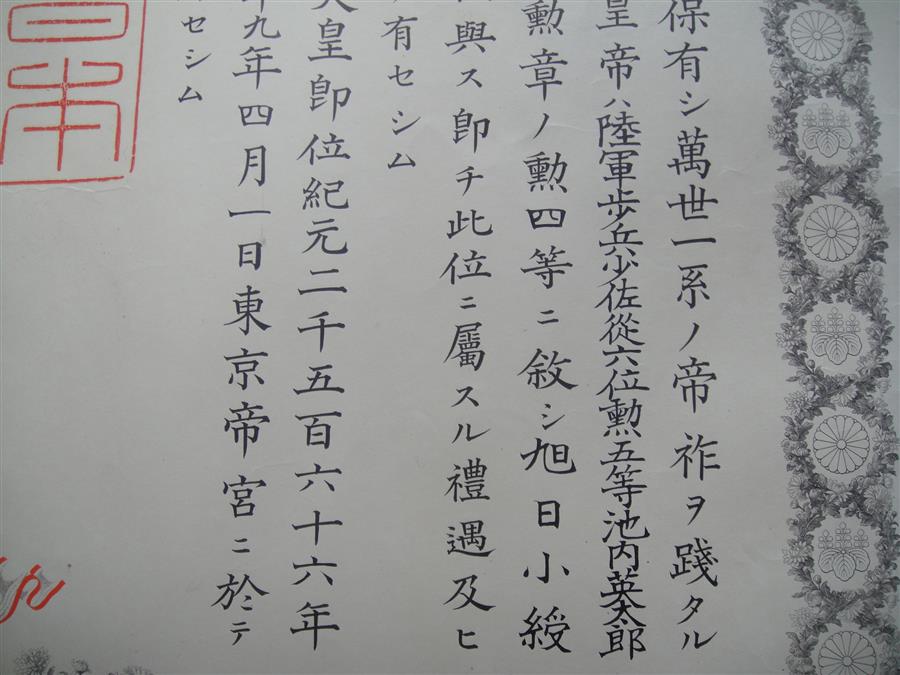 保有シ萬世一系ノ帝祚ヲ踐タル
皇帝ハ陸軍步兵少佐從六位勲五等池内英太郎
勲章ノ勲四等ニ敘シ旭日小綬
與ス即チ此位ニ屬スル禮遇及ヒ
有セシム
天皇即位紀元二千五百六十六年
九年四月一日東京帝宮ニ於テ
セシム
日本